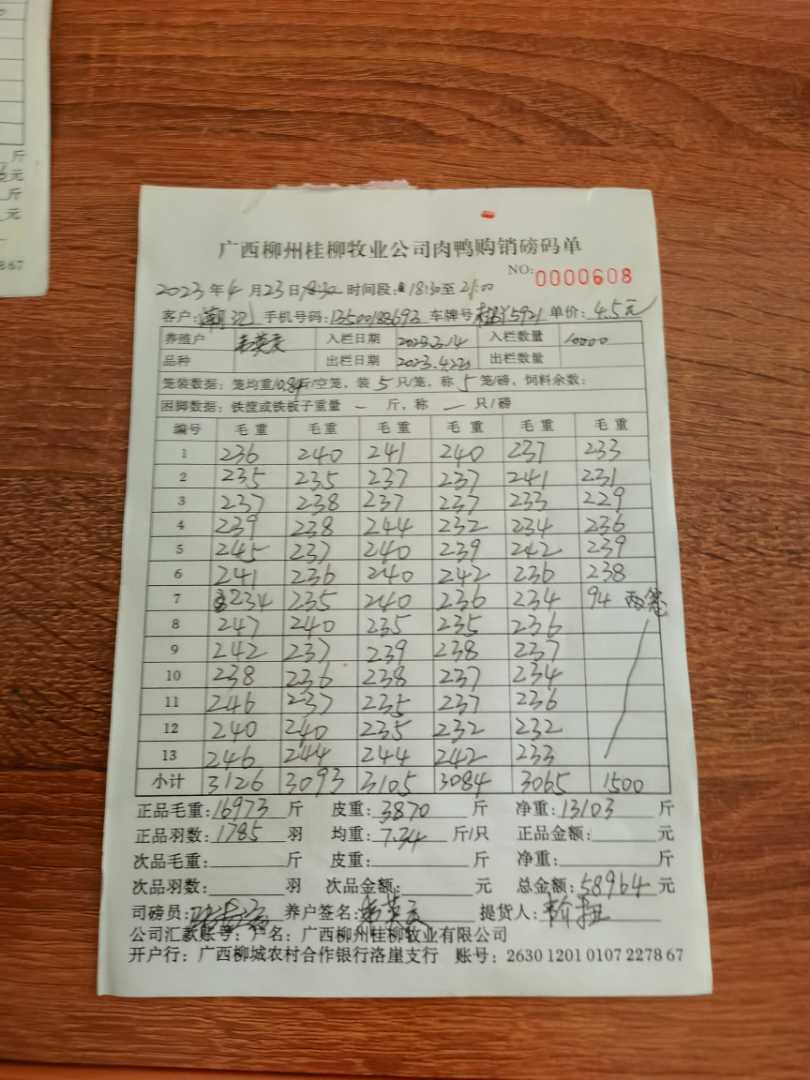 斤
元
斤
元
867
广西柳州桂柳牧业公司肉鸭购销磅码单
NO:0000608
2023年4月23日18:30 时间段:18:30至21:00
客户: 手机号码:13500183693 车牌号 5921 单价:4.5元
养殖户 韦英文 入栏日期 2023.3.14 入栏数量 10000
品种 出栏日期 2023.4.22 出栏数量
笼装数据:笼均重10.84斤/空笼,装5只/笼,称5笼/磅,饲料余数:
困脚数据:铁筐或铁板子重量 — 斤,称 — 只/磅
编号 毛重 毛重 毛重 毛重 毛重 毛重
1 236 240 241 240 237 233
2 235 235 237 237 241 231
3 237 238 237 237 233 229
4 239 238 244 232 234 236
5 245 237 240 239 242 239
6 241 236 240 242 236 238
7 234 235 240 236 234 94 两笼
8 247 240 235 235 236
9 242 237 239 238 237
10 238 236 238 237 234
11 246 237 235 237 236
12 240 240 235 232 232
13 246 244 244 242 233
小计 3126 3093 3105 3084 3065 1500
正品毛重:16973斤 皮重:3870斤 净重:13103斤
正品羽数:1785羽 均重:7.34斤/只 正品金额:元
次品毛重:斤 皮重:斤 净重:斤
次品羽数:羽 次品金额:元 总金额:58964元
司磅员: 养户签名:韦英文 提货人:
公司汇款账号:户名:广西柳州桂柳牧业有限公司
开户行:广西柳城农村合作银行洛崖支行 账号:2630 1201 0107 2278 67